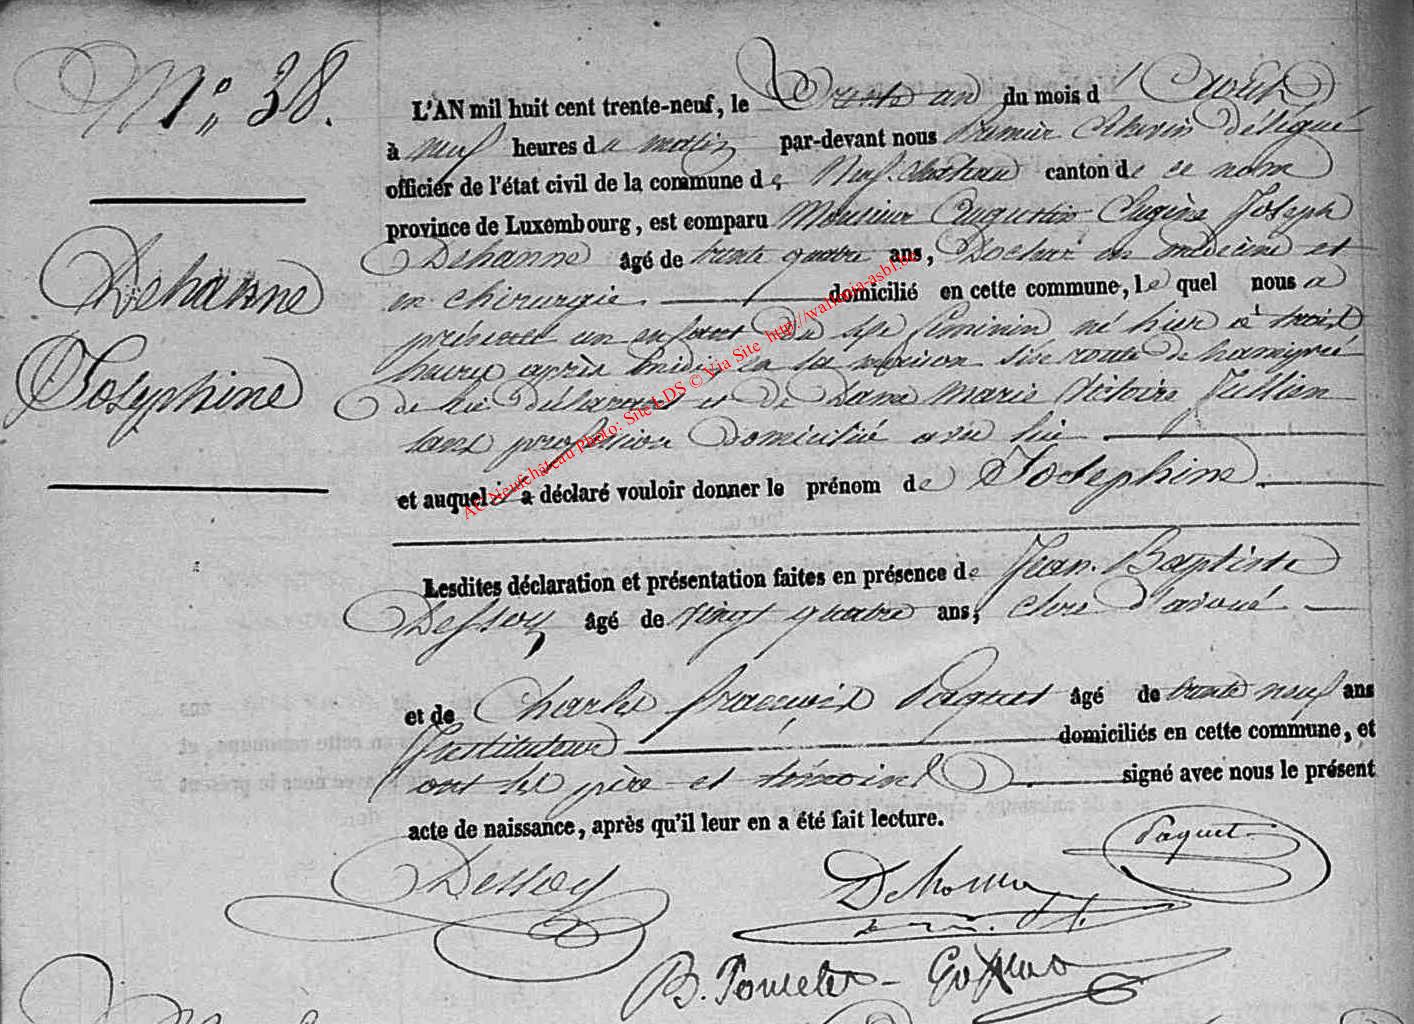 N° 38.
Dehanne
Josephine
L'AN mil huit cent trente-neuf, le trente un du mois d'Août
à neuf heures du matin par-devant nous Premier Echevin délégué
officier de l'état civil de la commune de Neufchateau canton de ce nom
province de Luxembourg, est comparu Monsieur Augustin Eugène Joseph
Dehanne âgé de trente quatre ans, Docteur en médecine et
en chirurgie. domicilié en cette commune, lequel nous a
présenté un enfant du sexe féminin né hier à trois
heures après midi en sa maison sise route de
de lui déclarant et de Dame Marie Victoire Jullien
sans profession domiciliée avec lui
et auquel il a déclaré vouloir donner le prénom de Josephine
Lesdites déclaration et présentation faites en présence de Jean-Baptiste
Dessoy âgé de vingt quatre ans, clerc d'avoué
et de Charles françois Paquet âgé de trente neuf ans
Instituteur domiciliés en cette commune, et
ont les père et témoins signé avec nous le présent
acte de naissance, après qu'il leur en a été fait lecture.
Paquet
Dessoy
Dehanne
AC Neufchateau Photo: Site LDS © Via Site http://wallonia-asbl.be